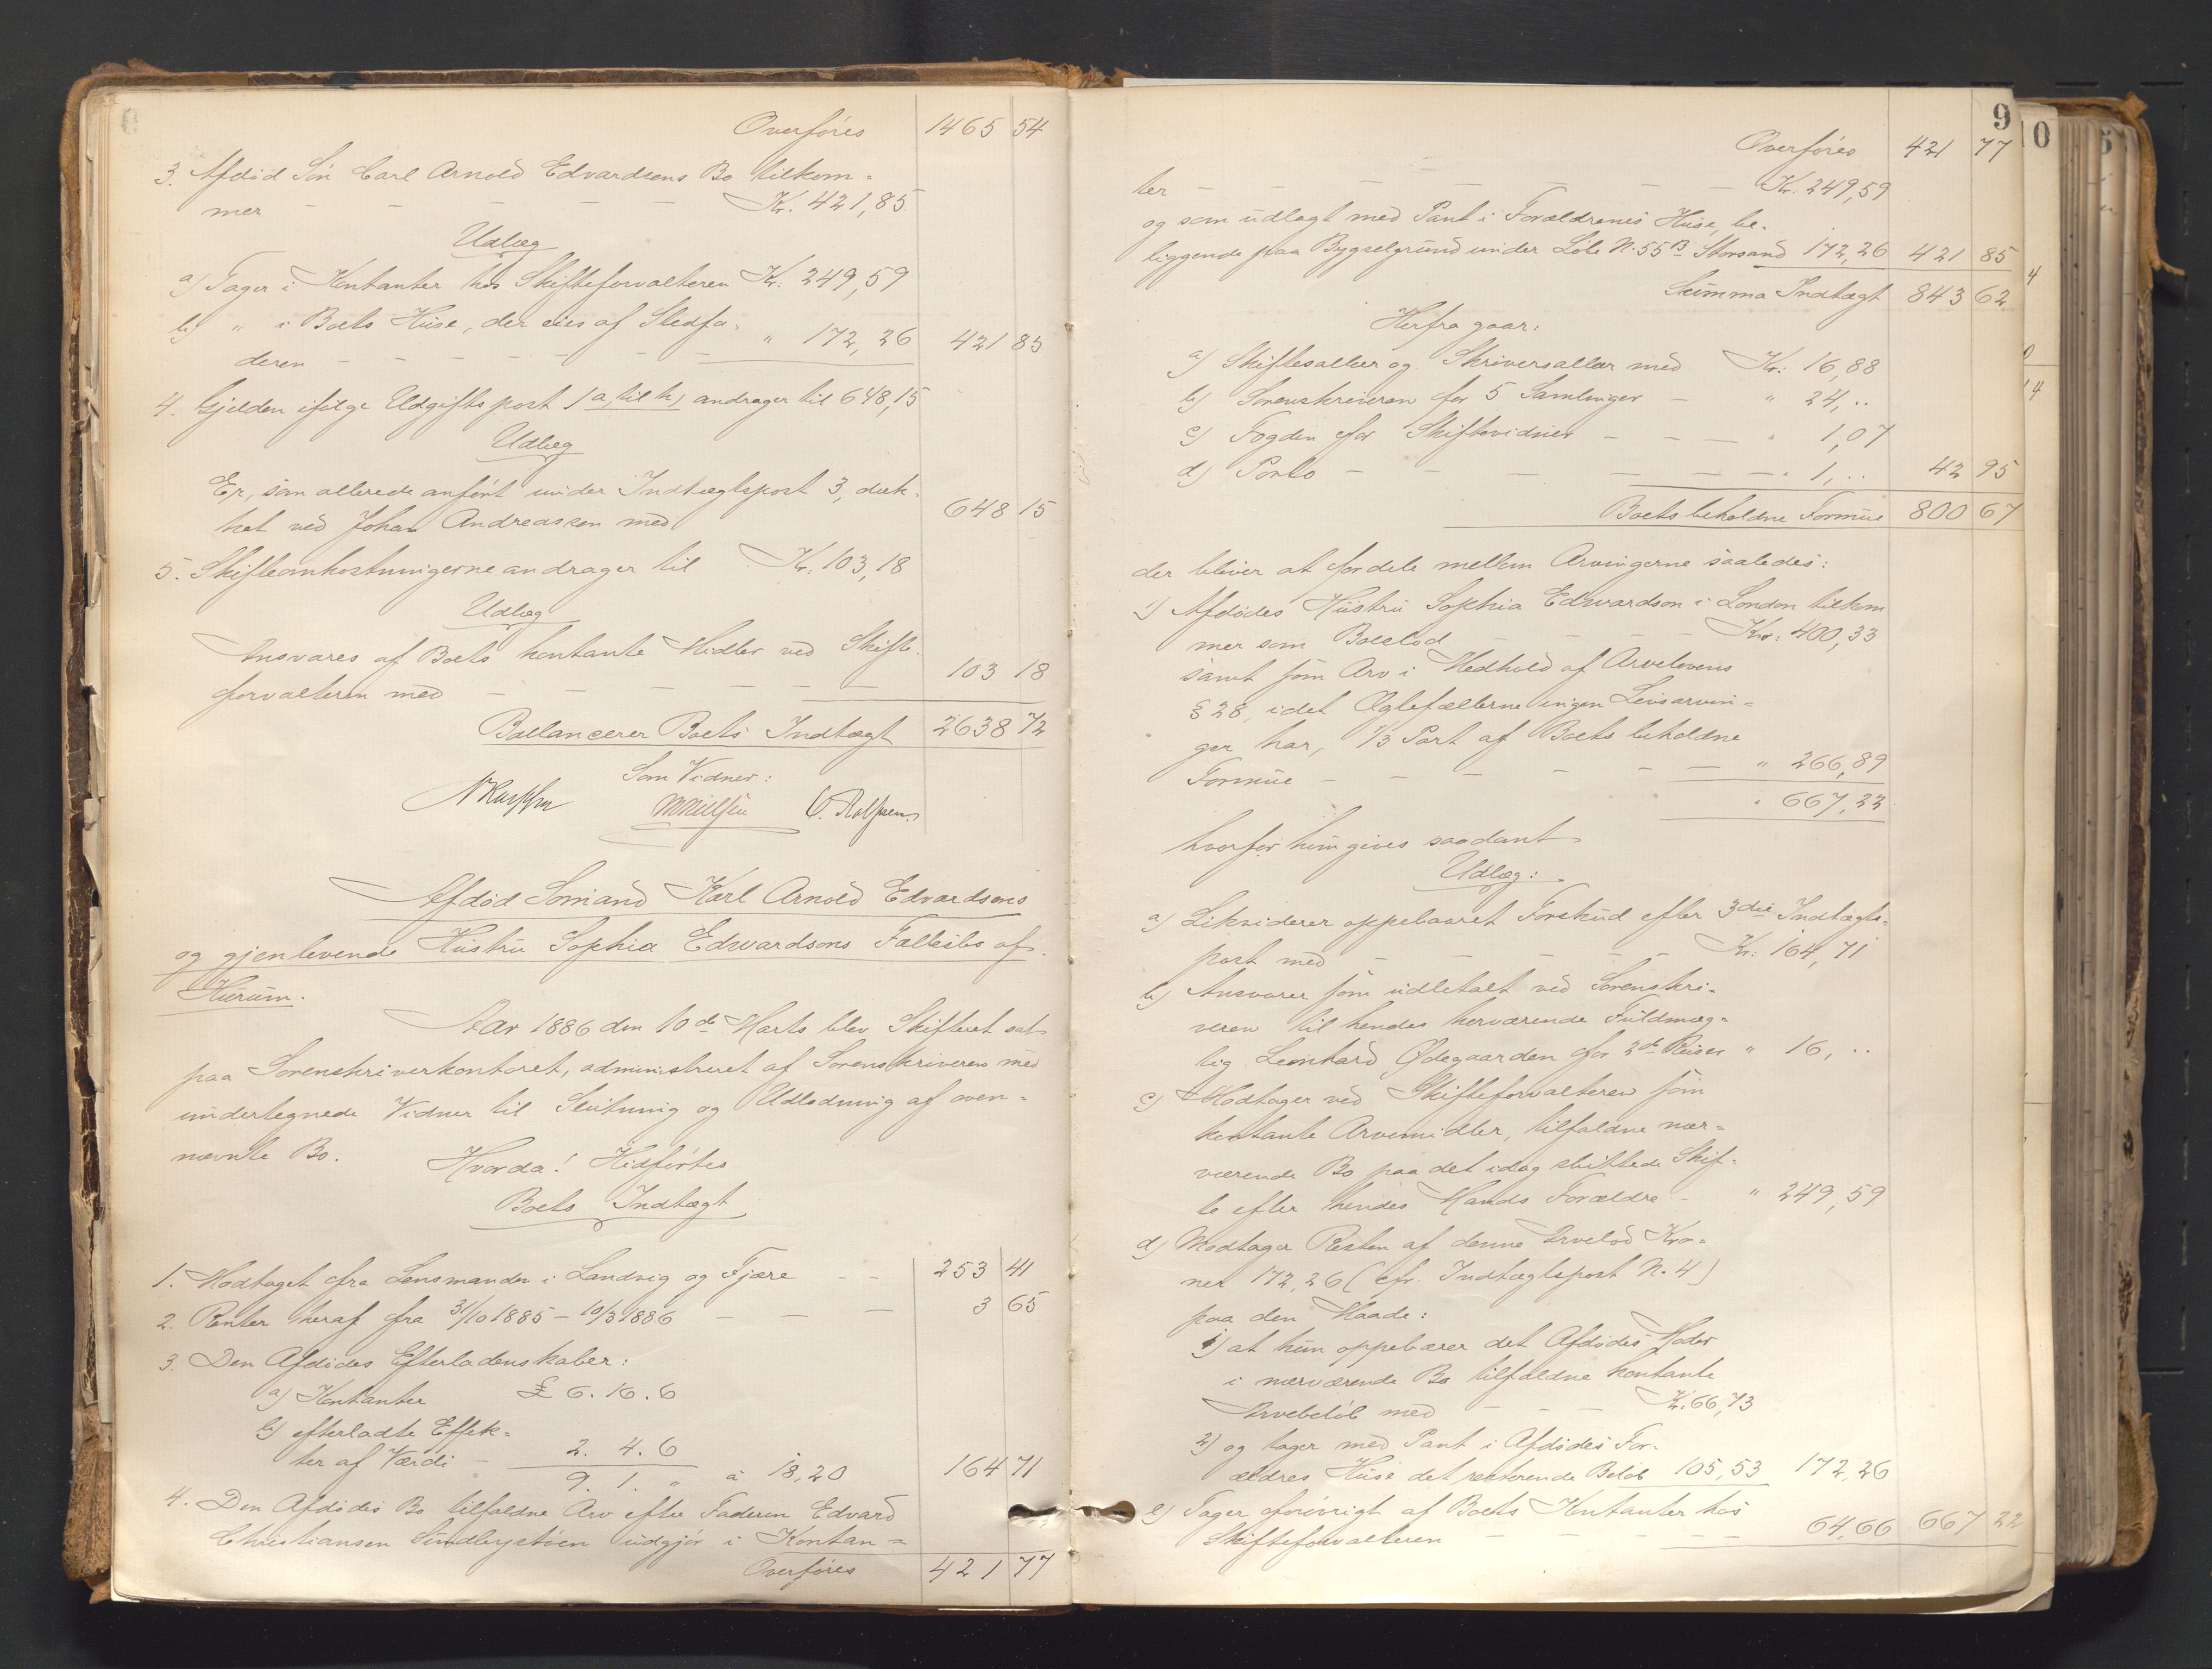 Overføres 1465 54
3. Afdød Søn Carl Arnold Edvardsens Bo tilkom=
mer - - - - - - Kr. 421,85
Udlæg
a) Tager i Kontanter hos Skifteforvalteren Kr. 249,59
b) " i Boets Huse, der eies af Stedfa=
deren - - - - - - " 172,26 421 85
4. Gjelden ifølge Udgiftspost 1 a, til h, andrager til 648,15
Udlæg
Er, som allerede anført under Indtægtspost 3, dæk=
ket ved Johan Andreassen med 648 15
5. Skifteomkostningerne andrager til Kr. 103,18
Udlæg
Ansvares af Boets kontante Midler ved Skifte=
forvalteren med - - - - - - 103 18
Ballancerer Boets Indtægt 2638 72
Som Vidner:
Afdød Sømand Karl Arnold Edvardsens
og gjenlevende Hustru Sophia Edwardsons Fællesbo af
Hurum.
Aar 1886 den 10de Marts blev Skifteret sat
paa Sorenskriverkontoret, administreret af Sorenskriveren med
undertegnede Vidner til Slutning og Udlodning af oven=
nævnte Bo.
Hvorda! Hidførtes
Boets Indtægt
1. Modtaget fra Lensmanden i Landvig og Fjære - - 253 41
2. Renter heraf fra 31/10 1885 - 10/3 1886 - - - 3 65
3. Den Afdødes Efterladenskaber:
a) Kontanter £ 6. 16. 6
b) efterladte Effek=
ter af Værdi - 2. 4. 6
9. 1. " à 18,20 164 71
4. Den Afdødes Bo tilfaldne Arv efter Faderen Edvard
Christiansen Sundbystøen udgjør i Kontan=
Overføres 421 77
9
Overføres 421 77
ter - - - - - - - - Kr. 249,59
og som udlagt med Pant i Forældrenes Huse, be=
liggende paa Bygselgrund under Løbe N. 55B Storsand 172,26 421 85
Summa Indtægt 843 62
Herfra gaar:
a) Skiftesallær og Skriversallær med Kr. 16,88
b) Sorenskriveren for 5 Samlinger - " 24,..
c) Fogden for Skiftevidner - - - " 1,07
d) Porto - - - - - - - " 1,.. 42 95
Boets beholdne Formue 800 67
der bliver at fordele mellem Arvingerne saaledes:
1) Afdødes Hustru Sophia Edwardson i London tilkom
mer som Boeslod - - - - - Kr. 400,33
samt som Arv i Medhold af Arvelovens
§ 28, idet Ægtefællerne ingen Livsarvin=
ger har, 1/3 Part af Boets beholdne
Formue - - - - - - - " 266,89
" 667,22
hvorfor hun gives saadant
Udlæg:
a) Likviderer oppebaaret Forskud efter 3die Indtægts=
post med - - - - - - Kr. 164,71
b) Ansvarer som udbetalt ved Sorenskri=
veren til hendes herværende Fuldmæg=
tig Leonhard Ødegaarden for 2de Reiser " 16,..
c) Modtager ved Skifteforvalteren som
kontante Arvemidler, tilfaldne nær=
værende Bo paa det idag sluttede Skif=
te efter hendes Mands Forældre - " 249,59
d) Modtager Resten af denne Arvelod Kro=
ner 172,26 (cfr. Indtægtspost N. 4)
paa den Maade:
1) at hun oppebærer det Afdødes Moder
i nærværende Bo tilfaldne kontante
Arvebeløb med - - - Kr. 66,73
2) og tager med Pant i Afdødes For=
ældres Huse det resterende Beløb 105,53 172,26
e) Tager forøvrigt af Boets Kontanter hos
Skifteforvalteren - - - - - 64,66 667 22